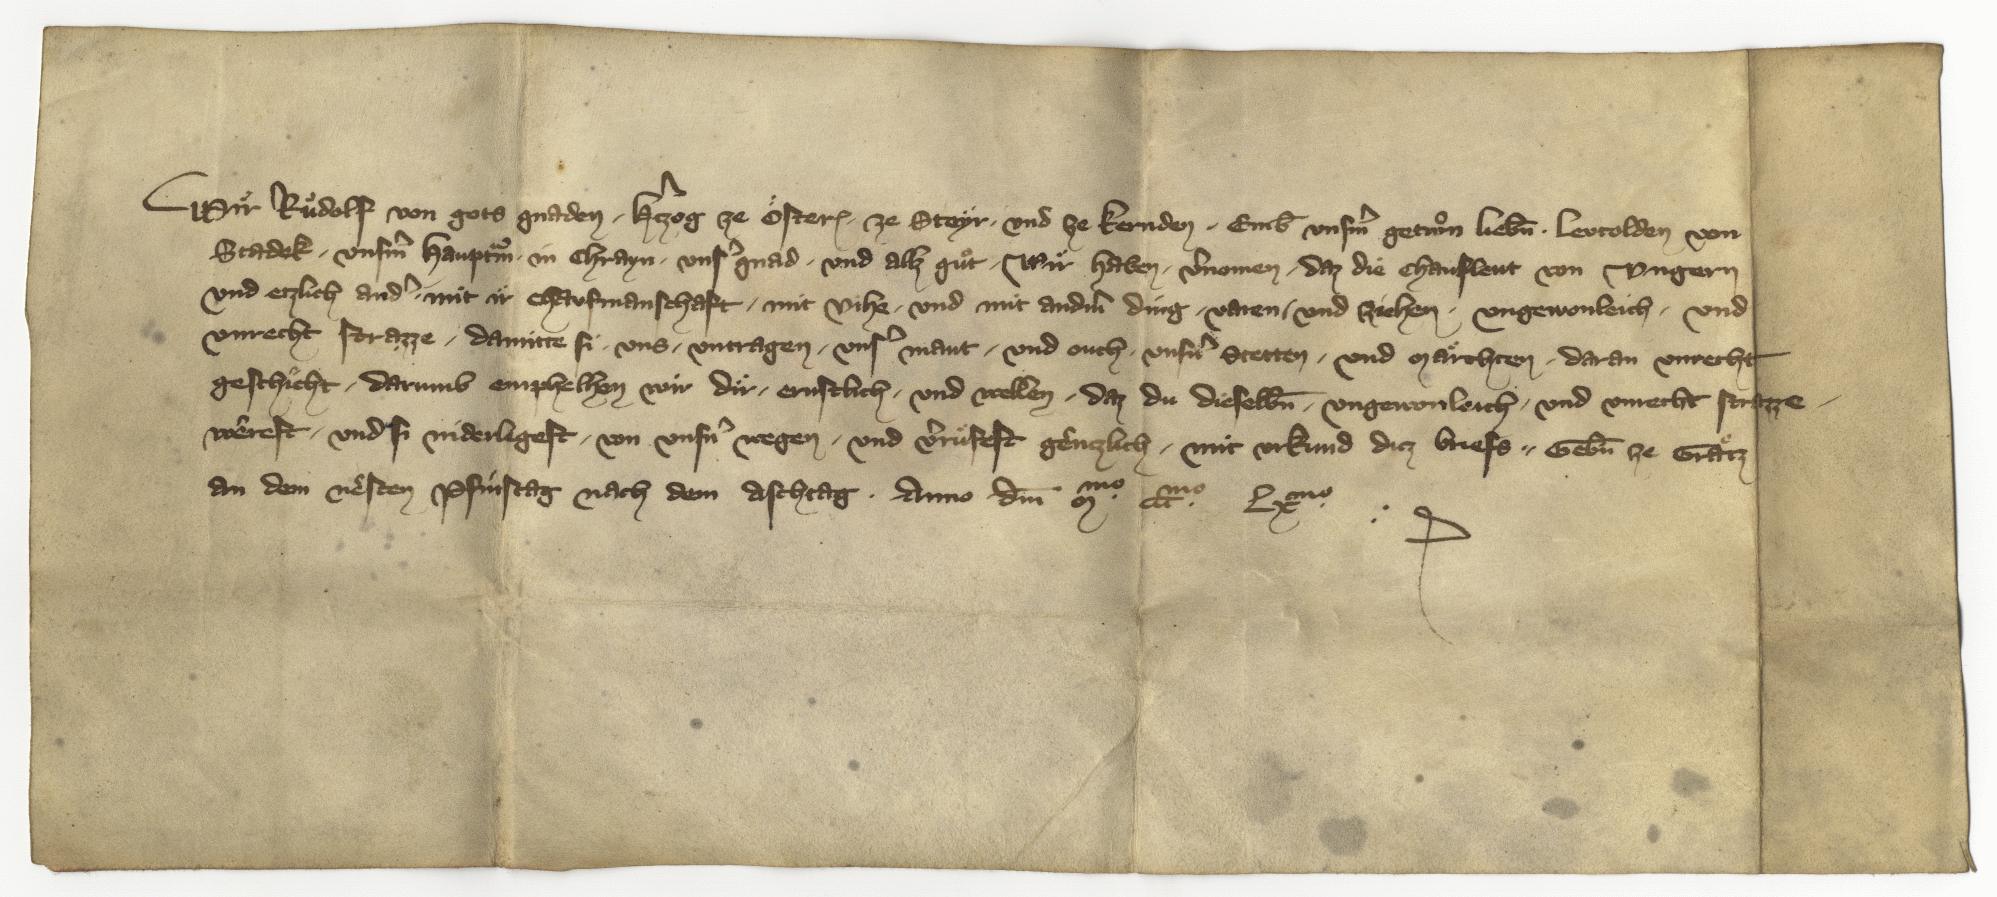 Wir Růdolf von gots gnaden · h'czog ze Öster˜ · ze Steyr · und ze kernden · Emb̄ unsm̄ getruͦn liebn̄ · Leutolden von
Stadek · unsm̄ hauptm̄ · in Chrayn · uns' gnad · und allz gůt · Wir haben · v'nomen · daz die chaufleut von Ungern
und etzlich and' · mit ir chaufmanschaft · mit vihe · und mit andm̄ ding · varen / und ziehen · ungewonleich · und
unrecht strazze · damitte si · uns · untragen · uns' maut · und ouch · unsn' Stetten · und Märchten · daran unrecht
geschicht · darumb emphelhen wir dir · ernstlich · und wellen · daz du dieselbn̄ · ungewonleich · und unrecht strazze ·
wêrest · und si niderligest · von unsn' wegen · und v'růfest gêntzlich · mit urkund ditz briefs ·· Gebn̄ ze Grätz
an dem nêsten Pfinstag nach dem Aschtag · Anno dm̄ Mͫͦ · CCCͫͦ · Lxͫͦ ·